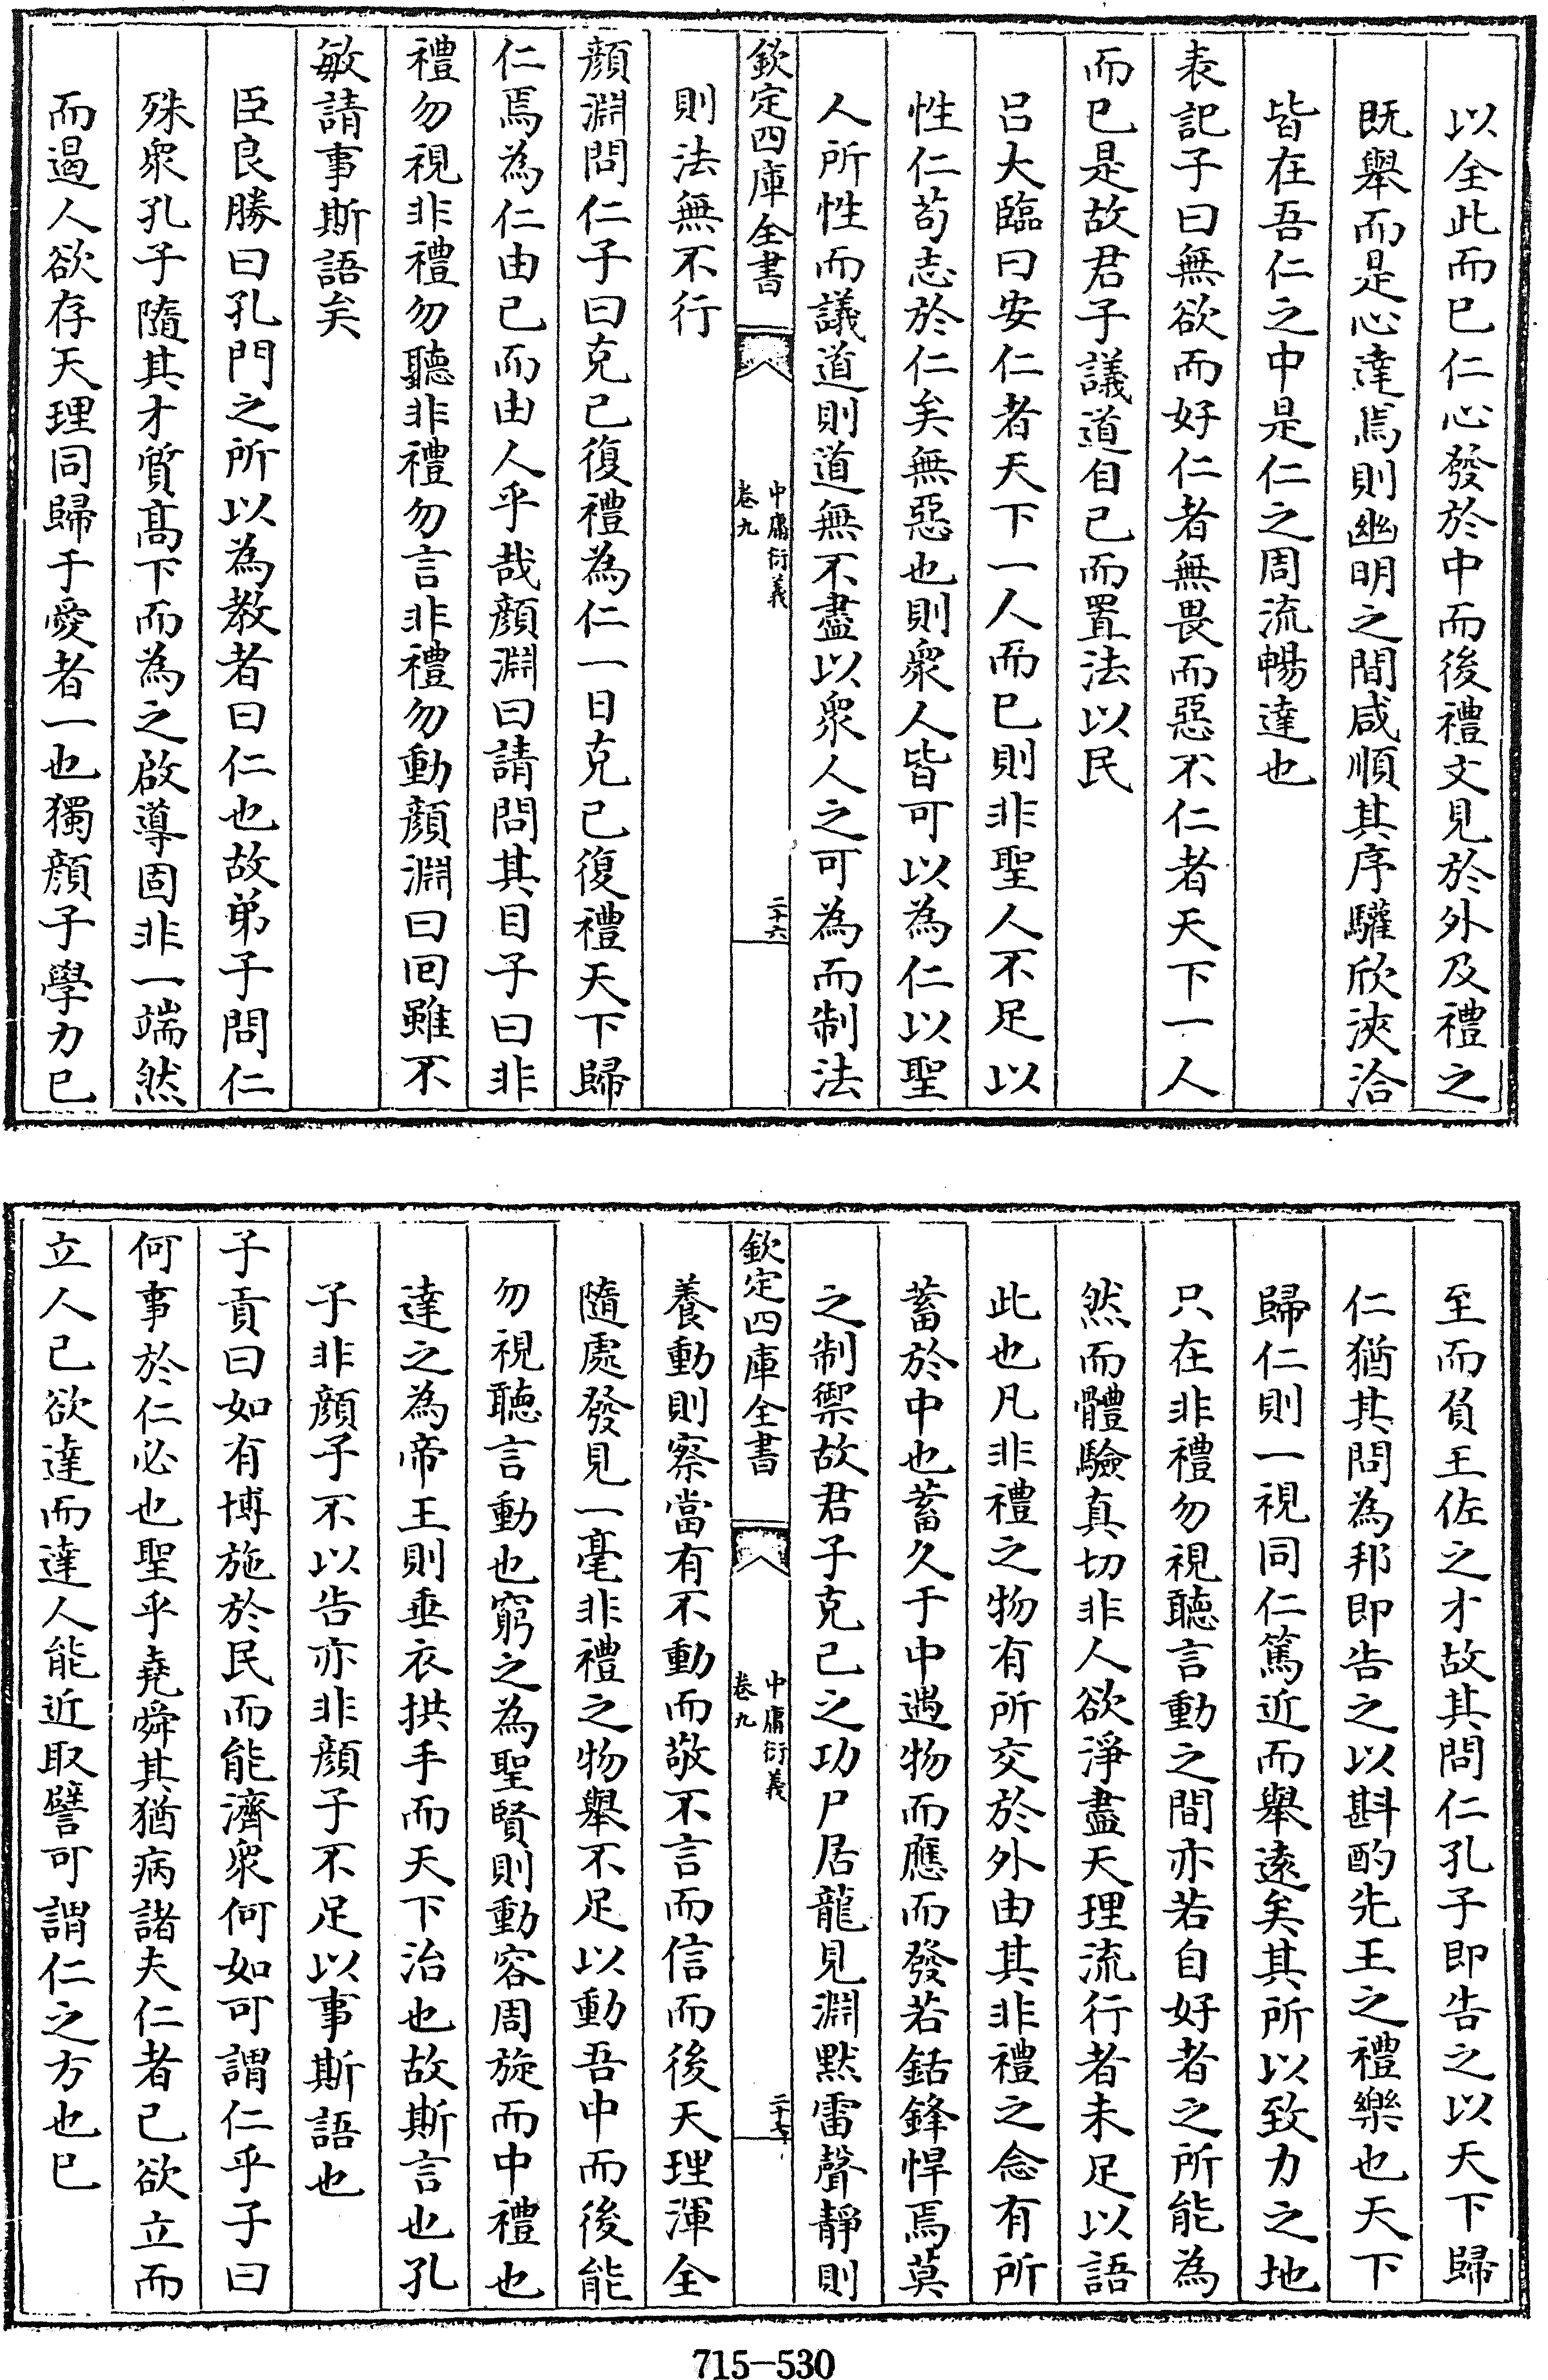 以全此而已仁心發於中而後禮文見於外及禮之
既舉而是心達焉則幽明之間咸順其序驩欣浹洽
皆在吾仁之中是仁之周流暢達也
表記子曰無欲而好仁者無畏而惡不仁者天下一人
而已是故君子議道自己而置法以民
呂大臨曰安仁者天下一人而已則非聖人不足以
性仁苟志於仁矣無惡也則衆人皆可以為仁以聖
人所性而議道則道無不盡以衆人之可為而制法
欽定四庫全書
中庸衍義
卷九
二十六
則法無不行
顔淵問仁子曰克己復禮為仁一日克己復禮天下歸
仁焉為仁由己而由人乎哉顔淵曰請問其目子曰非
禮勿視非禮勿聽非禮勿言非禮勿動顔淵曰回雖不
敏請事斯語矣
臣良勝曰孔門之所以為教者曰仁也故弟子問仁
殊衆孔子隨其才質髙下而為之啟導固非一端然
而遏人欲存天理同歸于愛者一也獨顔子學力已
至而負王佐之才故其問仁孔子即告之以天下歸
仁猶其問為邦即告之以斟酌先王之禮樂也天下
歸仁則一視同仁篤近而舉逺矣其所以致力之地
只在非禮勿視聽言動之間亦若自好者之所能為
然而體驗真切非人欲淨盡天理流行者未足以語
此也凡非禮之物有所交於外由其非禮之念有所
蓄於中也蓄久于中遇物而應而發若銛鋒悍焉莫
之制禦故君子克己之功尸居龍見淵默雷聲靜則
欽定四庫全書
中庸衍義
卷九
二十七
養動則察當有不動而敬不言而信而後天理渾全
隨處發見一毫非禮之物舉不足以動吾中而後能
勿視聽言動也窮之為聖賢則動容周旋而中禮也
達之為帝王則垂衣拱手而天下治也故斯言也孔
子非顔子不以告亦非顔子不足以事斯語也
子貢曰如有博施於民而能濟衆何如可謂仁乎子曰
何事於仁必也聖乎堯舜其猶病諸夫仁者己欲立而
立人己欲達而達人能近取譬可謂仁之方也已
715-530